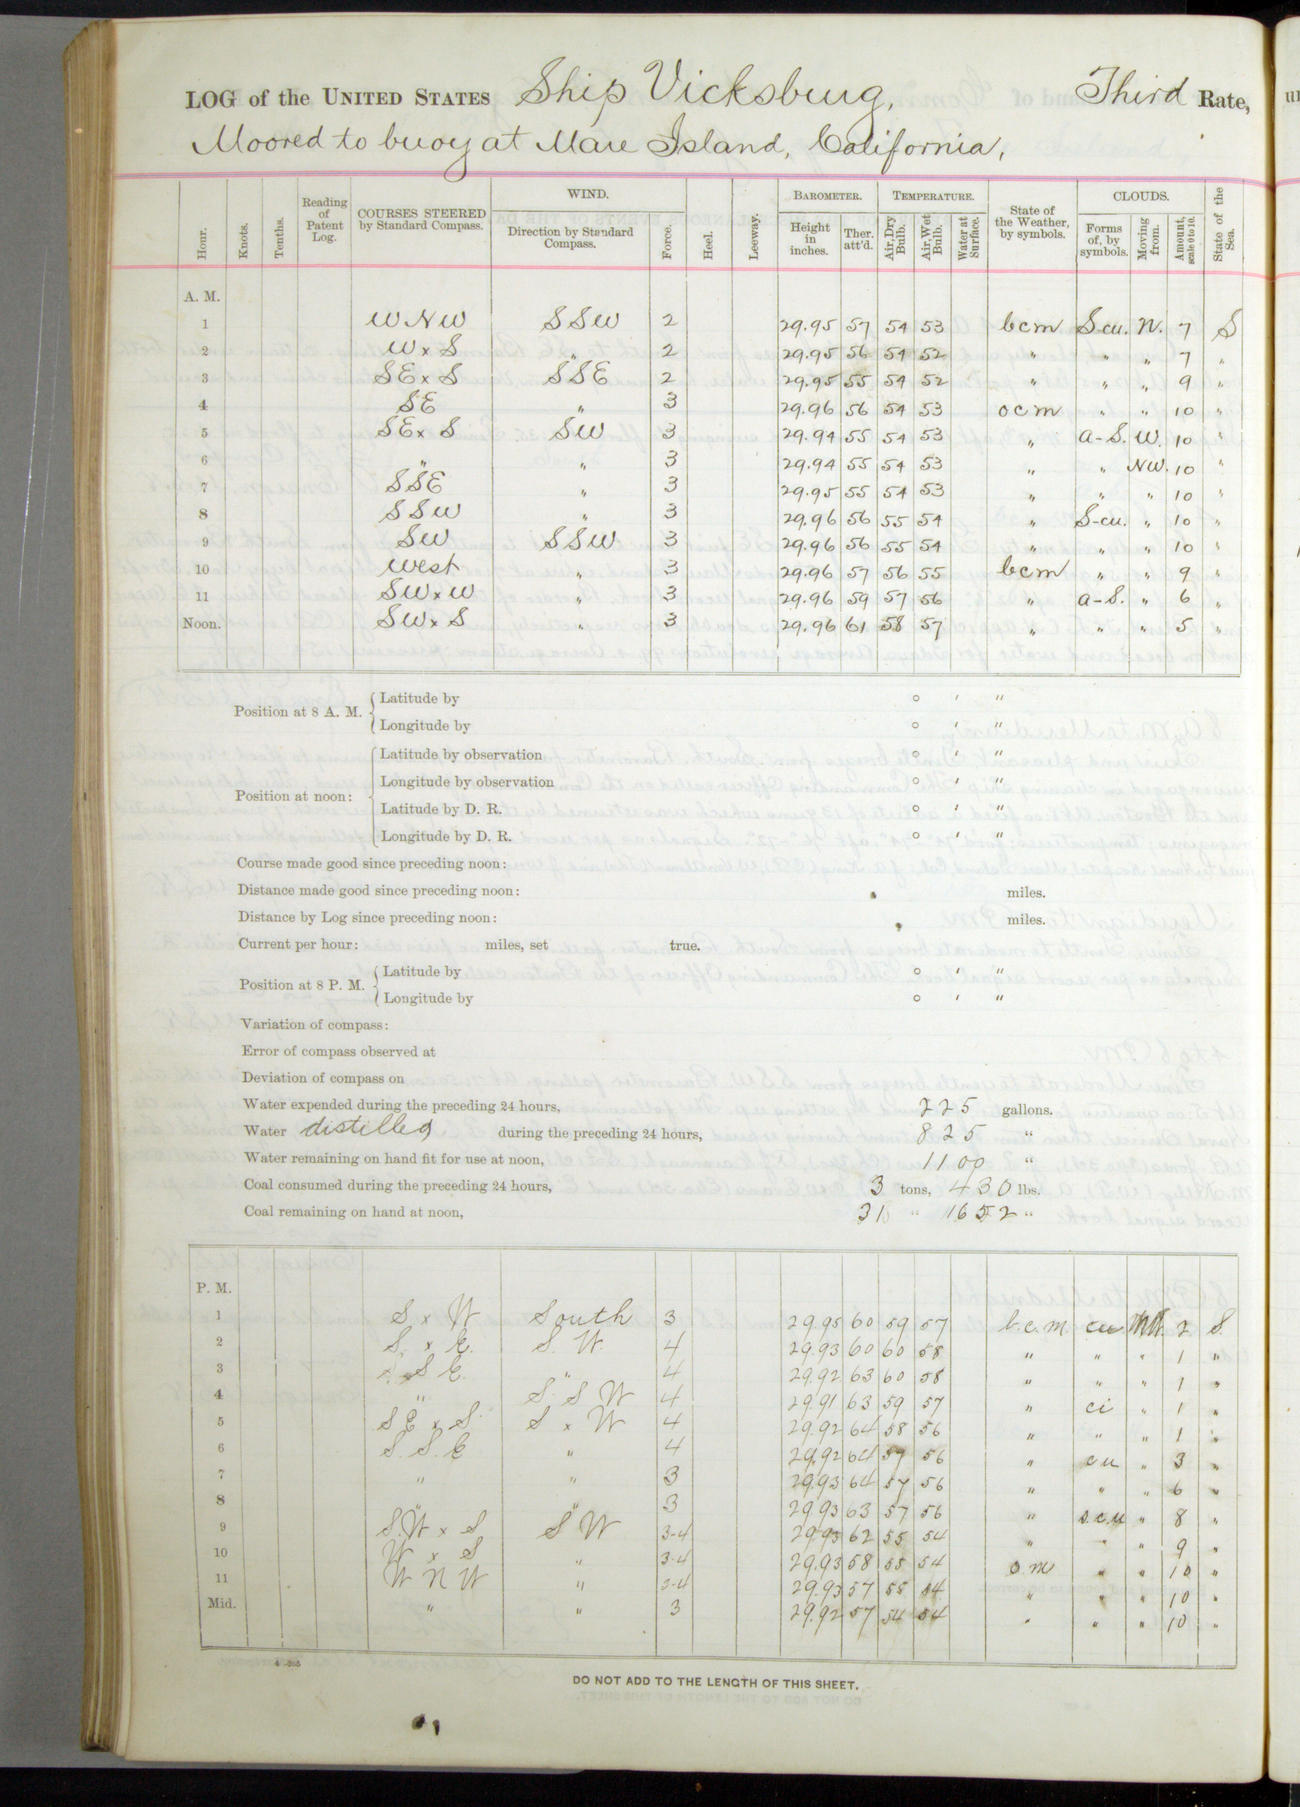 LOG of the UNITED STATES Ship Vicksburg, Third Rate,
Moored to buoy at Mare Island, California,
Hour. Knots. Tenths. Reading of Patent Log. COURSES STEERED by Standard Compass. WIND. Direction by Standard Compass. Force. Heel. Leeway. BAROMETER. Height in inches. Ther. att'd. TEMPERATURE. Air, Dry Bulb. Air, Wet Bulb. Water at Surface. State of the Weather, by symbols. CLOUDS. Forms of, by symbols. Moving from. Amount, scale 0 to 10. State of the Sea.
A. M.
1 WNW SSW 2 29.95 57 54 53 bcm S-cu. N. 7 S
2 W x S " 2 29.95 56 54 52 " " " 7 "
3 SE x S SSE 2 29.95 55 54 52 " " " 9 "
4 SE " 3 29.96 56 54 53 ocm " " 10 "
5 SE x S SW 3 29.94 55 54 53 " a-S. W. 10 "
6 " " 3 29.94 55 54 53 " " NW. 10 "
7 SSE " 3 29.95 55 54 53 " " " 10 "
8 SSW " 3 29.96 56 55 54 " S-cu. " 10 "
9 SW SSW 3 29.96 56 55 54 " " " 10 "
10 West " 3 29.96 57 56 55 bcm " " 9 "
11 SW x W " 3 29.96 59 57 56 " a-S. " 6 "
Noon. SW x S " 3 29.96 61 58 57 " " " 5 "
Position at 8 A. M. Latitude by ° ' "
Longitude by ° ' "
Position at noon: Latitude by observation ° ' "
Longitude by observation ° ' "
Latitude by D. R. ° ' "
Longitude by D. R. ° ' "
Course made good since preceding noon:
Distance made good since preceding noon: . miles.
Distance by Log since preceding noon: . miles.
Current per hour: miles, set true.
Position at 8 P. M. Latitude by ° ' "
Longitude by ° ' "
Variation of compass:
Error of compass observed at
Deviation of compass on
Water expended during the preceding 24 hours, 225 gallons.
Water distilled during the preceding 24 hours, 825 "
Water remaining on hand fit for use at noon, 1100 "
Coal consumed during the preceding 24 hours, 3 tons, 430 lbs.
Coal remaining on hand at noon, 31 " 1652 "
P. M.
1 S x W South 3 29.95 60 59 57 b.c.m. cu 2 S.
2 S. x E. S. W. 4 29.93 60 60 58 " " " 1 "
3 S E. " 4 29.92 63 60 58 " " " 1 "
4 " S. S W 4 29.91 63 59 57 " ci " 1 "
5 SE x S. S x W 4 29.92 64 58 56 " " " 1 "
6 S. S. E " 4 29.92 64 57 56 " cu " 3 "
7 " " 3 29.93 64 57 56 " " " 6 "
8 " " 3 29.93 63 57 56 " s.cu " 8 "
9 S.W x S S W 3-4 29.93 62 55 54 " " " 9 "
10 W x S " 3-4 29.93 58 55 54 o.m " " 10 "
11 W N W " 3-4 29.93 57 55 54 " " " 10 "
Mid. " " 3 29.92 57 54 54 " " " 10 "
DO NOT ADD TO THE LENGTH OF THIS SHEET.